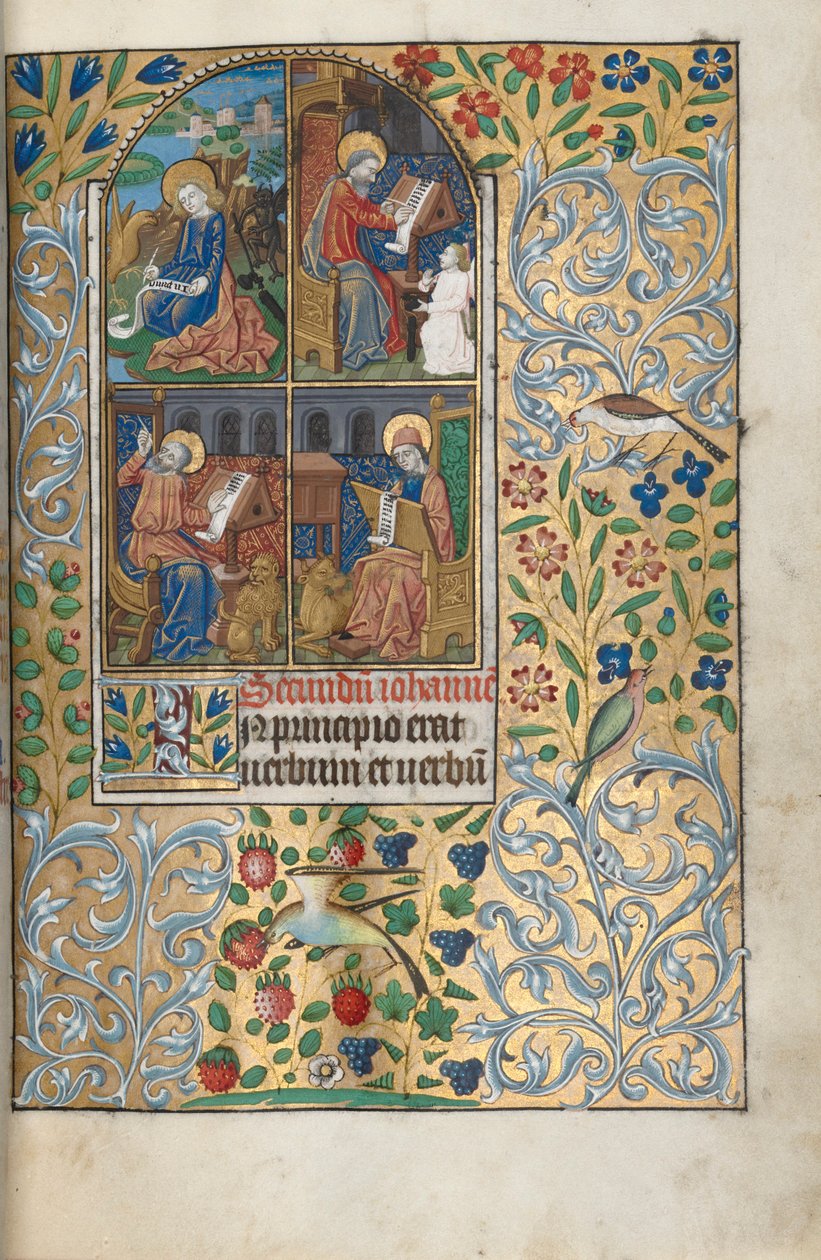 Secundũ iohannẽ
IN principio erat
uerbum et uerbũ